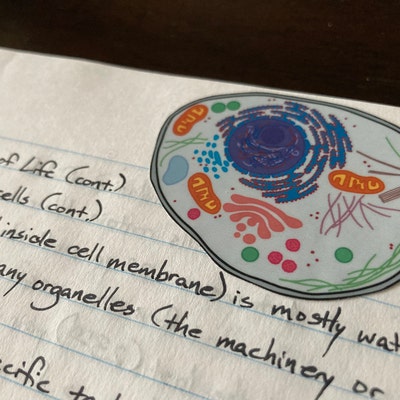 of Life (cont.)
cells (cont.)
inside cell membrane) is mostly wat
any organelles (the machinery or
cific t